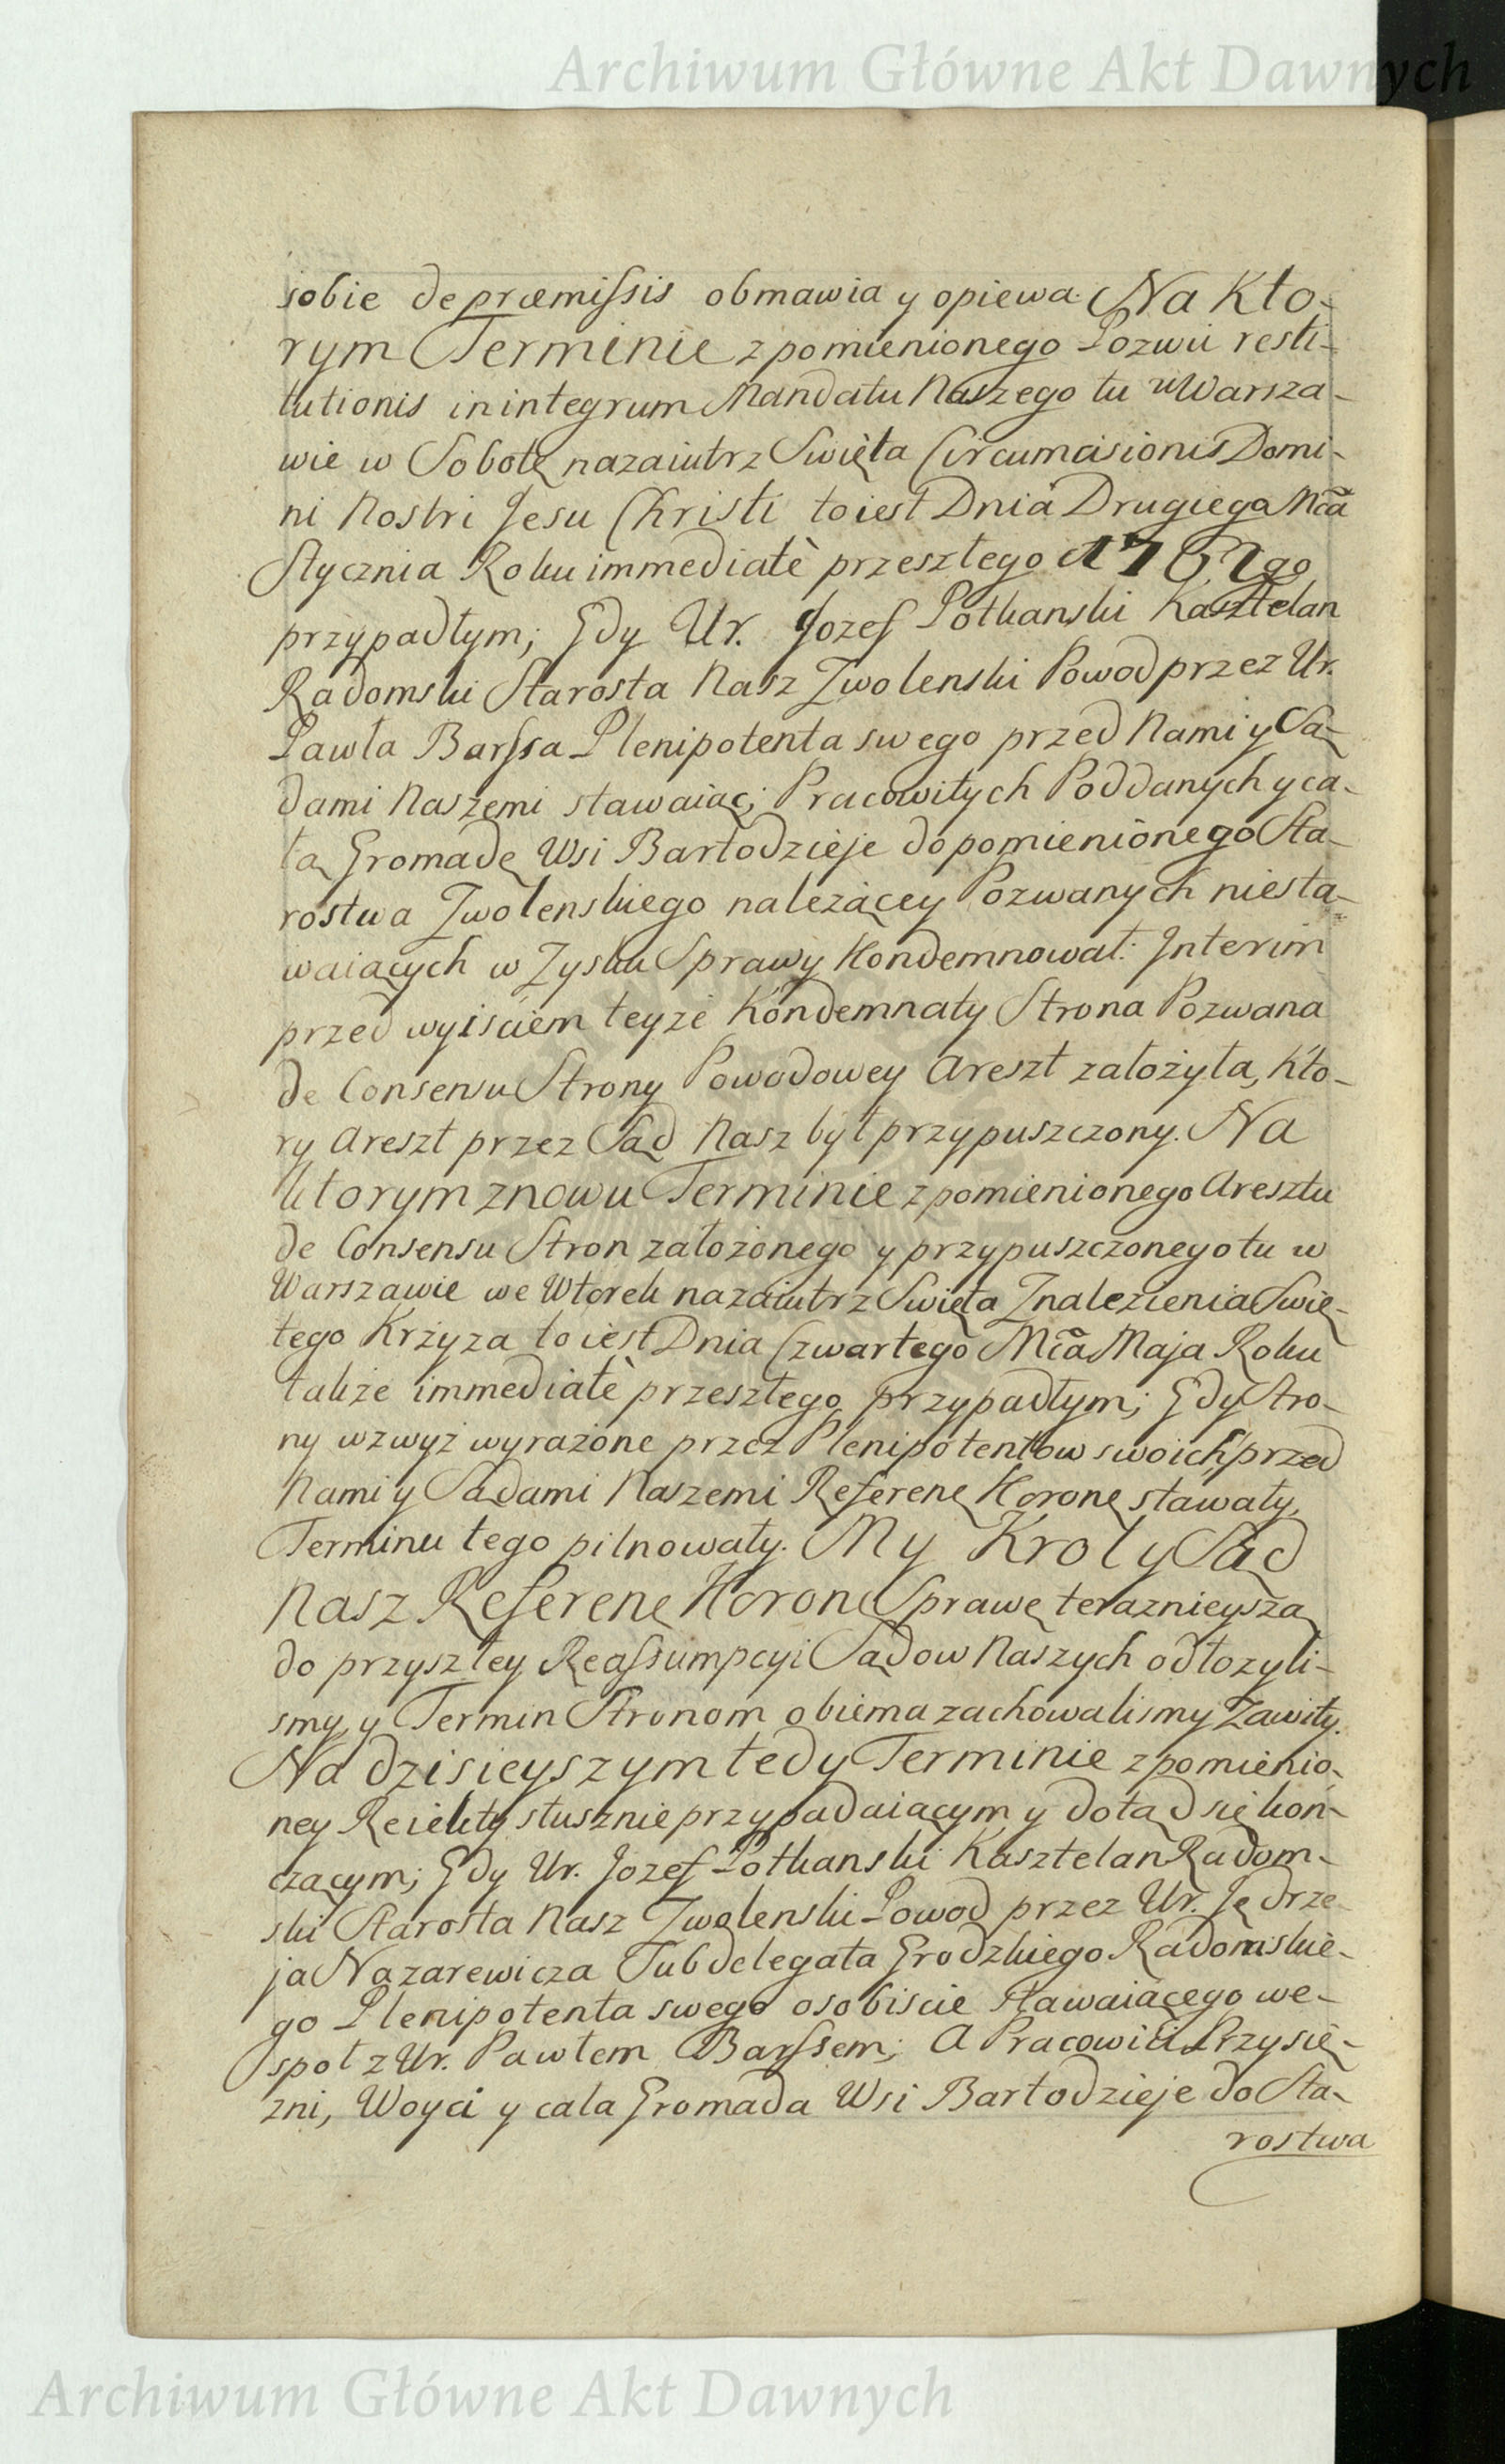 Archiwum Główne Akt Dawnych
sobie de præmissis obmawia y opiewa. Na Kto-
rym Terminie z pomienionego Pozwu resti-
tutionis in integrum Mandatu Naszego tu w Warsza-
wie w Sobotę nazaiutrz Swięta Circumcisionis Domi-
ni Nostri Jesu Christi to iest Dnia Drugiego Mca
Stycznia Roku immediatè przeszłego
przypadłym; Gdy Ur. Jozef Potkanski Kasztelan
Radomski Starosta Nasz Zwolenski Powod przez Ur.
Pawła Barssa Plenipotenta swego przed Nami y Są-
dami Naszemi stawaiąc; Pracowitych Poddanych y ca-
łą Gromadę Wsi Bartodzieje do pomienionego Sta-
rostwa Zwolenskiego należącey Pozwanych niesta-
waiących w Zysku Sprawy Kondemnował: Interim
przed wyisciem teyże Kondemnaty Strona Pozwana
de Consensu Strony Powodowey Areszt założyła, Kto-
ry Areszt przez Sąd Nasz był przypuszczony. Na
ktorym znowu Terminie z pomienionego Aresztu
de Consensu Stron założonego y przypuszczonego tu w
Warszawie we Wtorek nazaiutrz Swięta Znalezienia Swię-
tego Krzyża to iest Dnia Czwartego Mca Maja Roku
także immediatè przeszłego przypadłym; Gdy Stro-
ny wzwyż wyrażone przez Plenipotentow swoich przed
Nami y Sądami Naszemi Referenę Koronę stawały,
Terminu tego pilnowały. My Krol y Sąd
Nasz Referenę Koronę Sprawę teraznieyszą
do przyszłey Reassumpcyi Sądow Naszych odłożyli-
smy y Termin Stronom obiema zachowalismy Zawity.
Na dzisieyszym tedy Terminie z pomienio-
ney Reiekty słusznie przypadaiącym y dotąd się kon-
czącym; Gdy Ur. Jozef Potkanski Kasztelan Radom-
ski Starosta Nasz Zwolenski Powod przez Ur. Jędrze-
ja Nazarewicza Subdelegata Grodzkiego Radomskie-
go Plenipotenta swego osobiscie stawaiącego we-
społ z Ur. Pawłem Barssem; A Pracowici Przysię-
żni, Woyci y cała Gromada Wsi Bartodzieje do Sta-
rostwa
Archiwum Główne Akt Dawnych